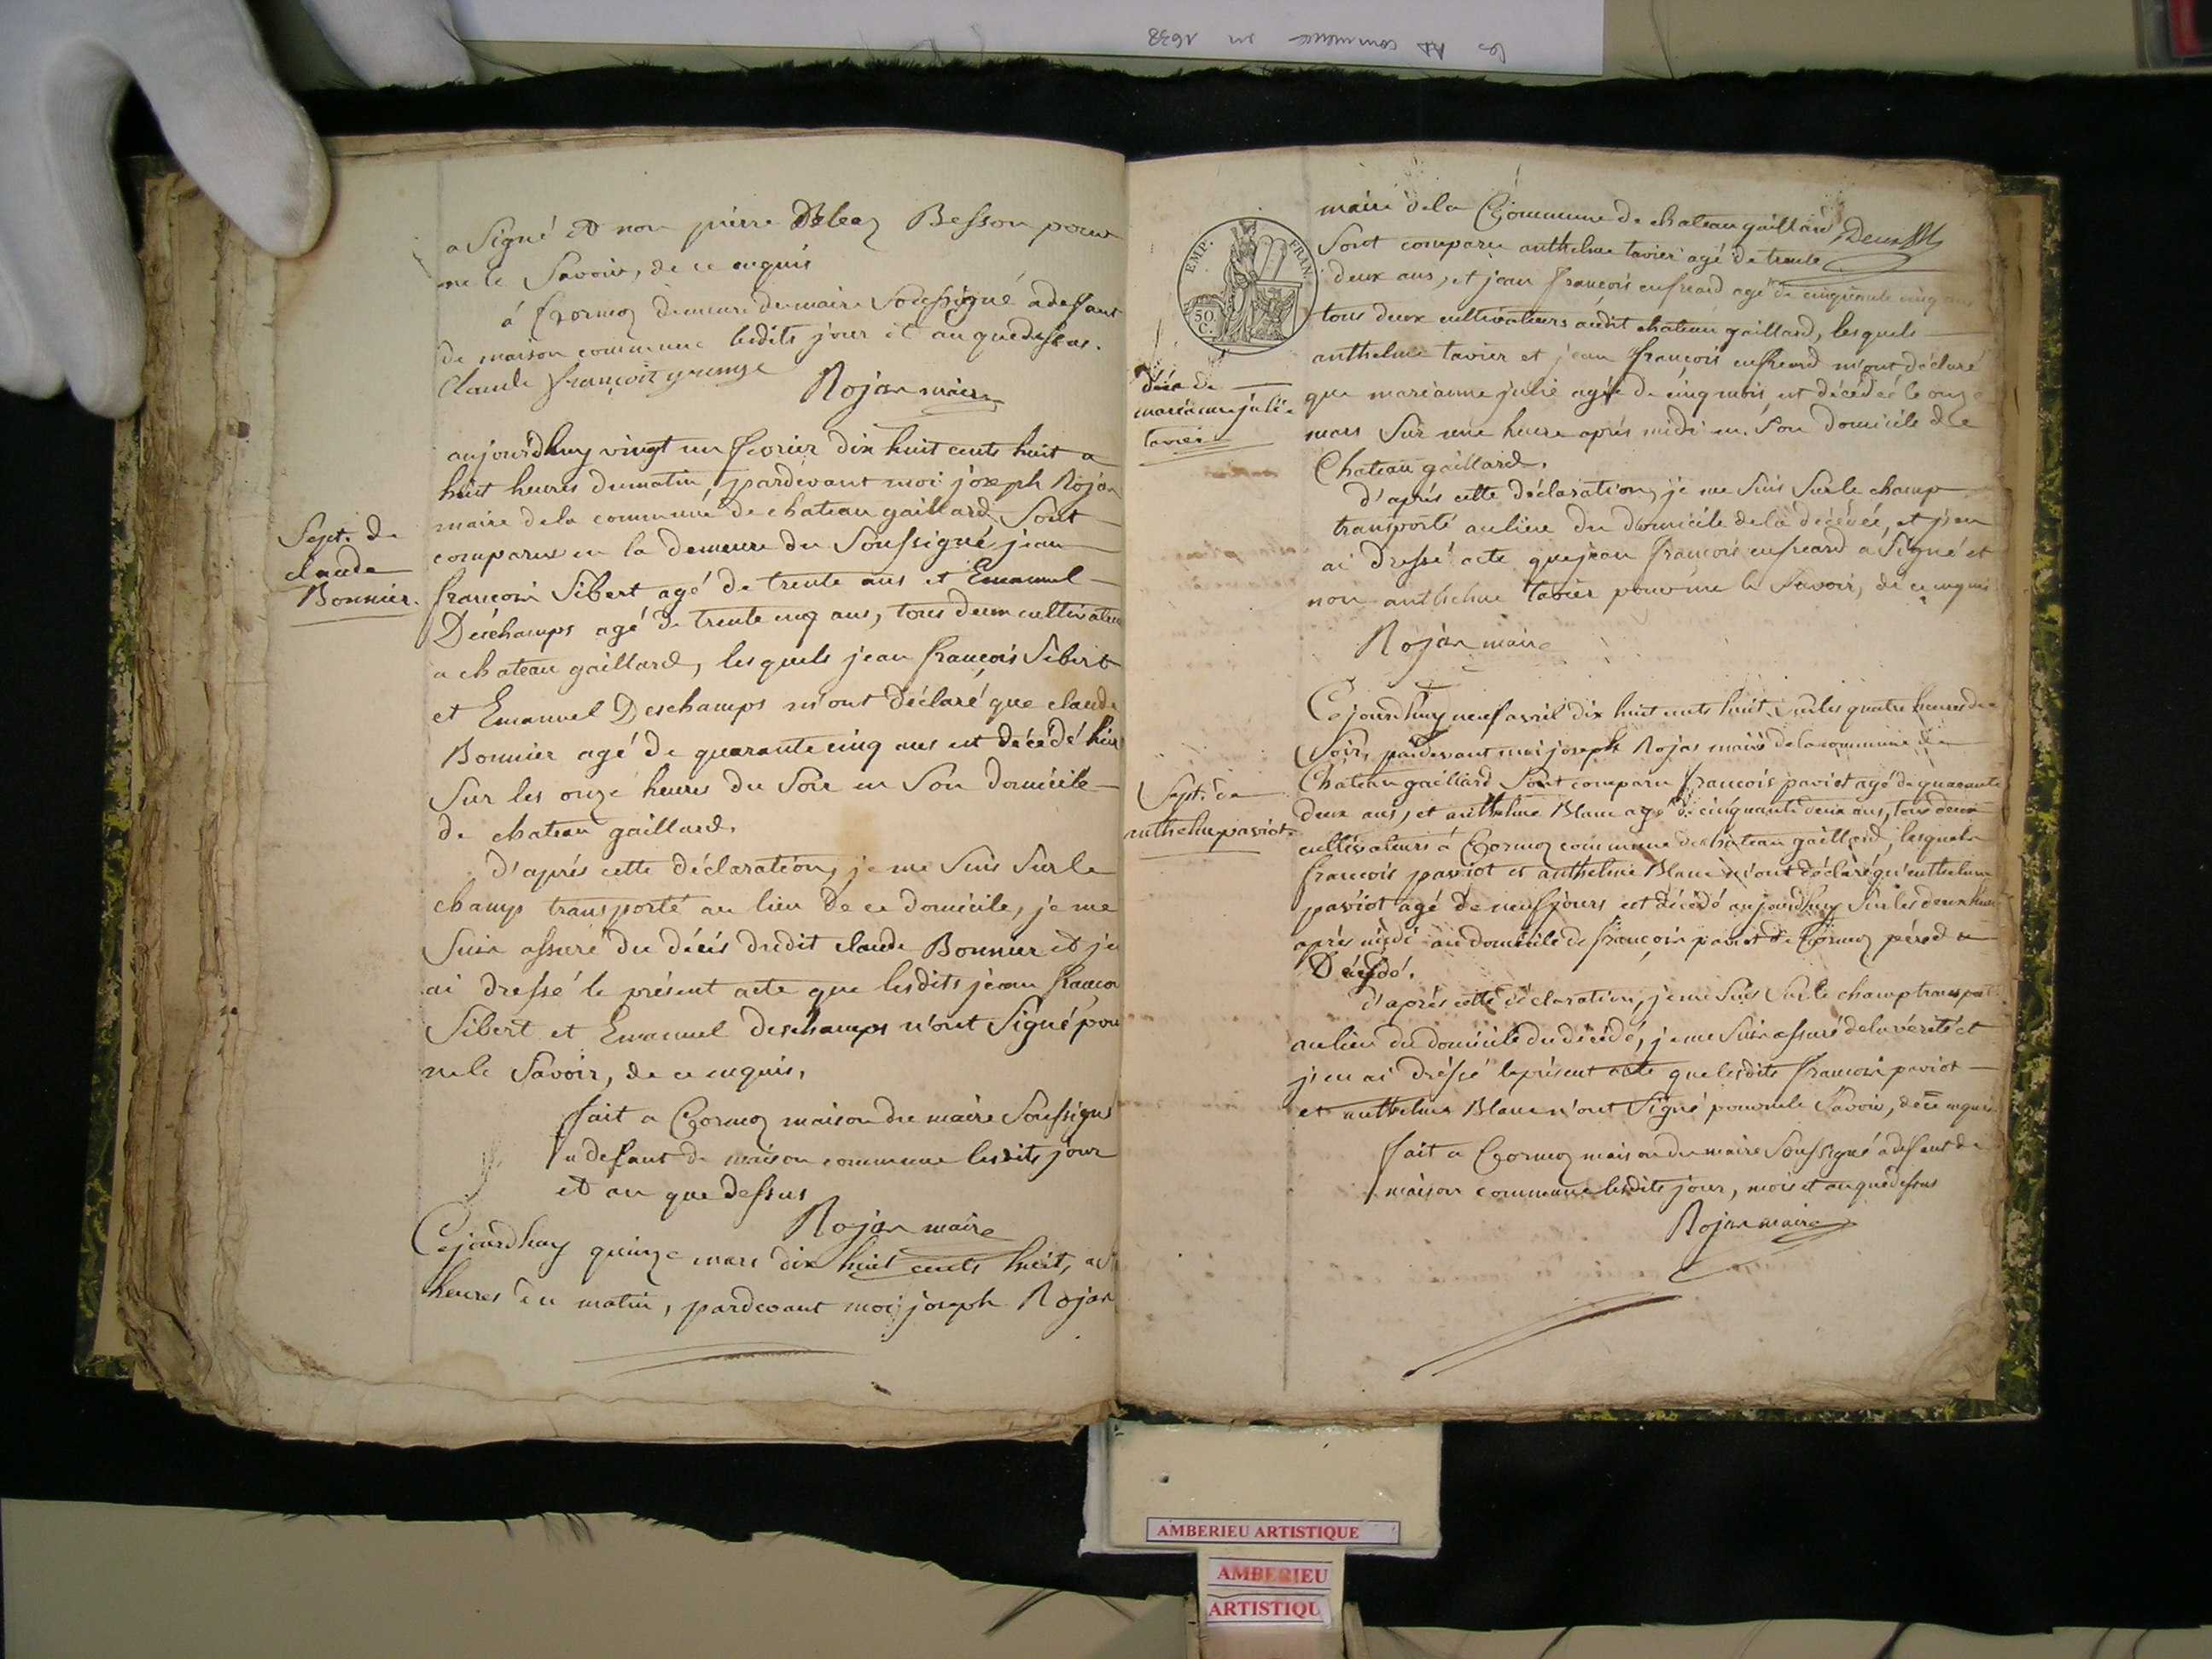 les commence en 1638
a Signé et non pierre Besson pour
ne le Savoir, de ce enquis
à Cormoz demeure de maire Soussigné a deffaut
de maison commune lesdits jour et an que dessus.
Claude françois
Rojas maire
Sept. de
claude
Bonnier.
aujourdhuy vingt un fevrier dix huit cents huit a
huit heures du matin, pardevant moi joseph Rojas
maire dela commune de chateau gaillard, Sont
comparus en la demeure du Soussigné jean
françois Sibert agé de trente ans et Emanuel
Deschamps agé de trente cinq ans, tous deux cultivateurs
a chateau gaillard, lesquels jean françois Sibert
et Emanuel Deschamps m'ont déclaré que claude
Bonnier agé de quarante cinq ans est décédé hier
Sur les onze heures du Soir en Son domicile
de chateau gaillard.
d'après cette déclaration, je me Suis Sur le
champ transporté au lieu de ce domicile, je me
Suis assuré du décès dudit claude Bonnier et j'en
ai dressé le présent acte que lesdits jean françois
Sibert et Emanuel deschamps n'ont Signé pour
ne le Savoir, de ce enquis,
fait a Cormoz maison du maire Soussigné
a defaut de maison commune lesdits jour
et an que dessus
Rojas maire
Cejourdhuy quinze mars dix huit cents huit, a
heures du matin, pardevant moi joseph Rojas
EMP. FRAN.
50
C.
maire dela Commune de chateau gaillard
Sont comparu anthelme tavier agé de trente
deux ans, et jean françois enfreard agé de cinquante cinq ans
tous deux cultivateurs audit chateau gaillard, lesquels
anthelme tavier et jean françois enfreard m'ont déclaré
que marianne julie agée de cinq mois, est décédée le onze
mars Sur une heure après midi en Son domicile de
Chateau gaillard.
décès de
marianne julie
tavier
d'après cette déclaration, je me Suis Sur le champ
transporté au lieu du domicile de la décédée, et j'en
ai dressé acte que jean françois enfreard a Signé et
non anthelme tavier pour ne le Savoir, de ce enquis
Rojas maire
Cejourdhuy neuf avril dix huit cents huit, Sur les quatre heures du
Soir, pardevant moi joseph Rojas maire dela commune de
Chateau gaillard Sont comparu françois paviot agé de quarante
deux ans, et anthelme Blanc agé de cinquante deux ans, tous deux
cultivateurs à Cormoz commune de chateau gaillard, lesquels
françois paviot et anthelme Blanc m'ont déclaré qu'anthelme
paviot agé de neuf jours est décédé aujourdhuy Sur les deux heures
après midi au domicile de françois paviot de Cormoz père du
Décédé.
Sept. de
anthelme paviot.
d'après cette déclaration, je me Suis Sur le champ transporté
au lieu du domicile du décédé, je me Suis assuré de la vérité et
j'en ai dréssé le présent acte que lesdits françois paviot
et anthelme Blanc n'ont Signé pour ne le Savoir, de ce enquis
fait a Cormoz maison du maire Soussigné a defaut de
maison commune lesdits jour, mois et an que dessus
Rojas maire
AMBERIEU ARTISTIQUE
AMBERIEU
ARTISTIQU